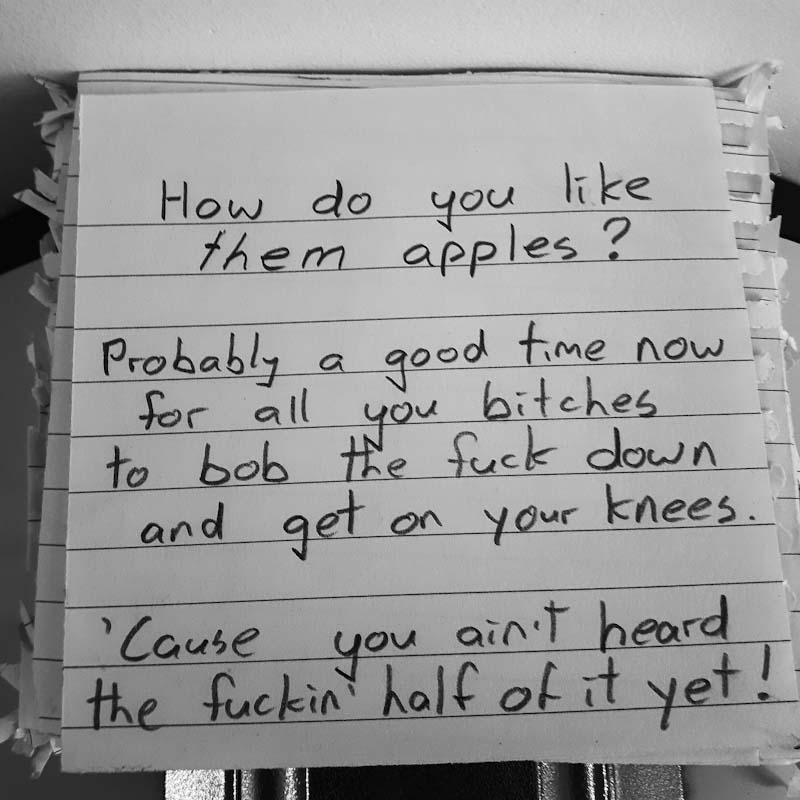 How do you like
them apples?
Probably a good time now
for all you bitches
to bob the fuck down
and get on your knees.
'Cause you ain't heard
the fuckin' half of it yet!